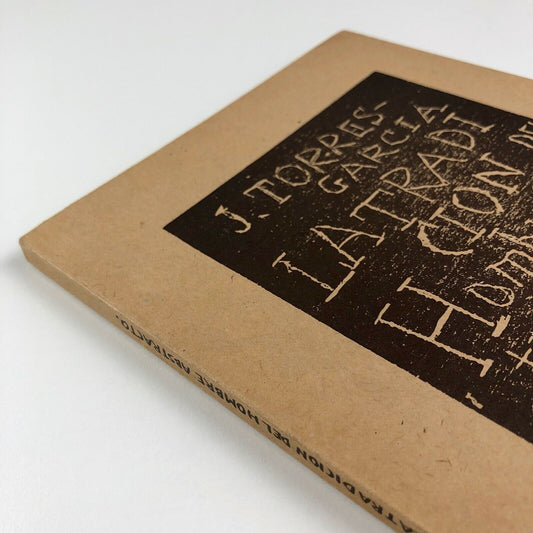 J. TORRES-
GARCIA
LA TRADI
CION DE
HOM
LA TRADICION DEL HOMBRE ABSTRACTO.